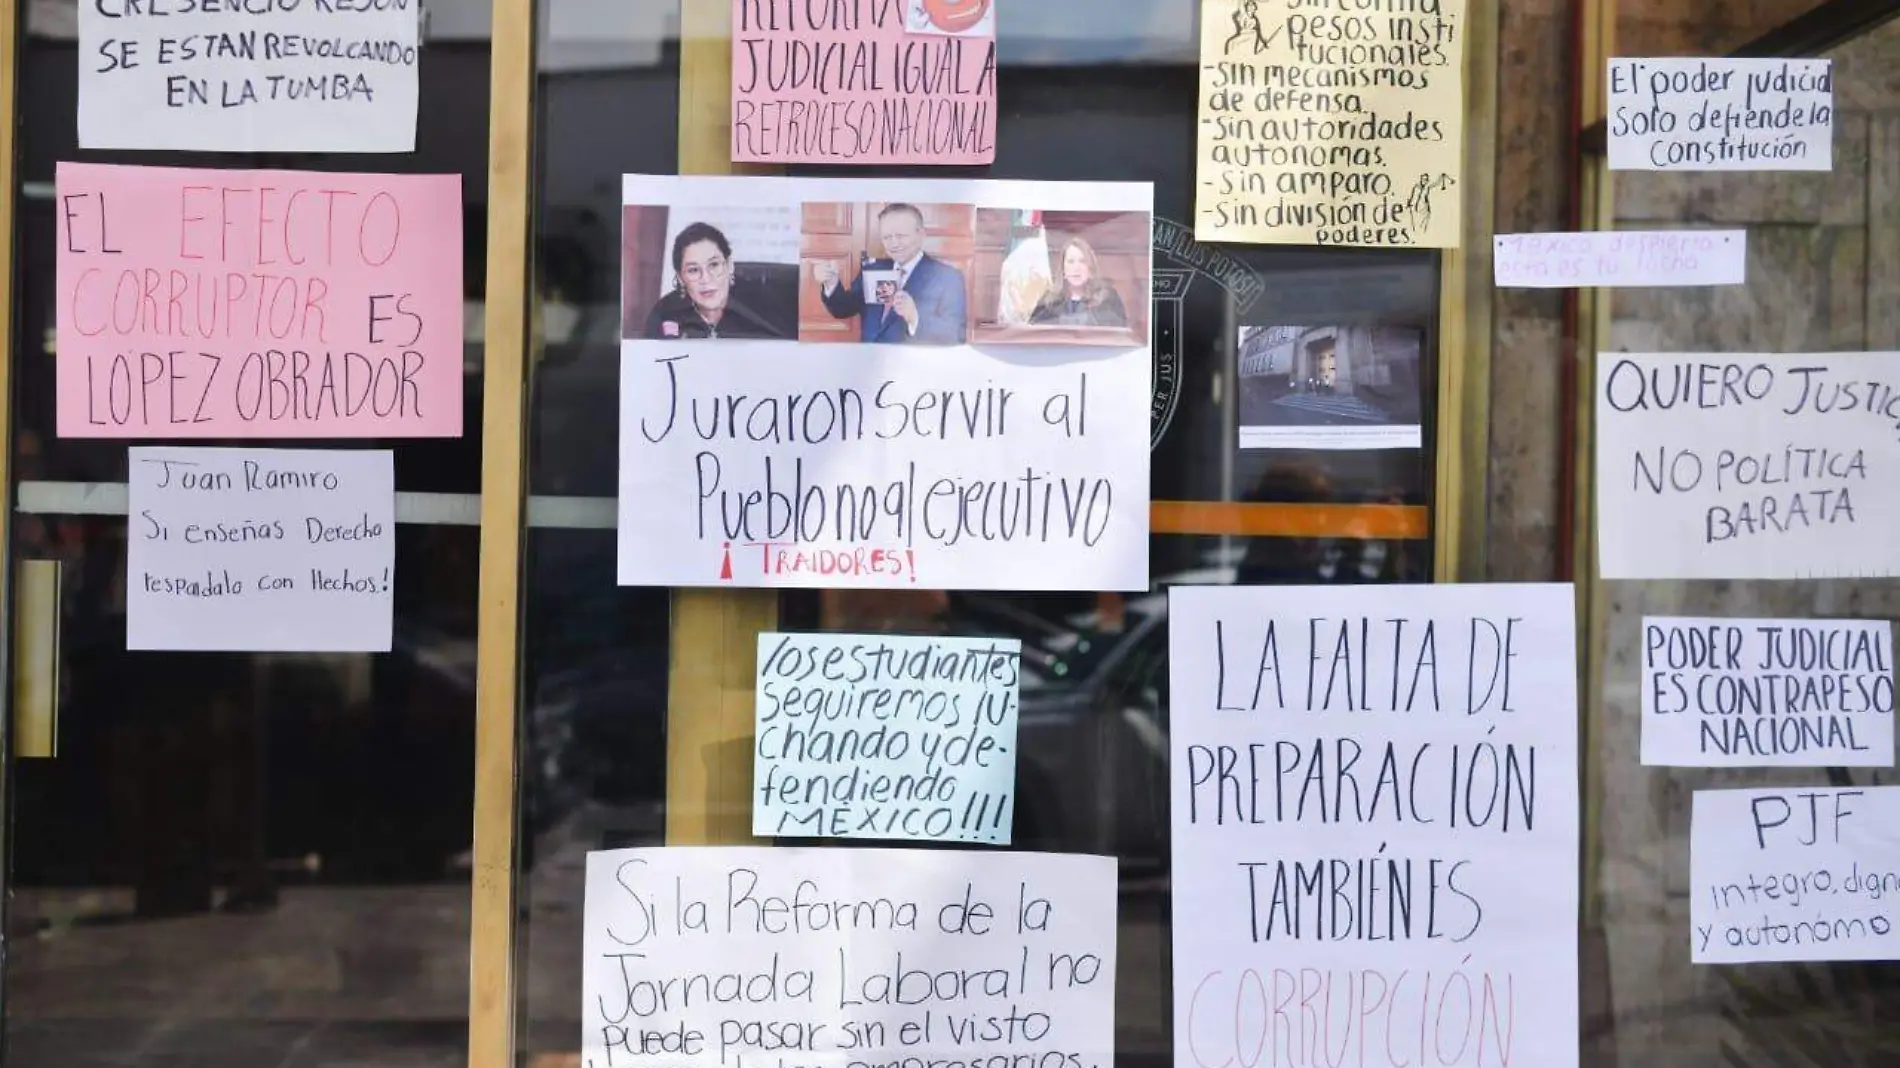 CRESENCIO REJON
SE ESTAN REVOLCANDO
EN LA TUMBA
EL EFECTO
CORRUPTOR ES
LÓPEZ OBRADOR
Juan Ramiro
Si enseñas Derecho
respaldalo con Hechos!
REFORMA
JUDICIAL IGUAL A
RETROCESO NACIONAL
Juraron servir al
Pueblo no al ejecutivo
¡TRAIDORES!
los estudiantes
seguiremos lu-
chando y de-
fendiendo
MÉXICO!!!
Si la Reforma de la
Jornada Laboral no
puede pasar sin el visto
empresarios,
Sin contra
pesos insti
tucionales.
-Sin mecanismos
de defensa.
-Sin autoridades
autonomas.
-Sin amparo.
-Sin división de
poderes.
SAN LUIS POTOSI
PER JUS
LA FALTA DE
PREPARACIÓN
TAMBIÉN ES
CORRUPCIÓN
El poder judicial
solo defiende la
Constitución
México despierta
esta es tu lucha
QUIERO JUSTIC
NO POLÍTICA
BARATA
PODER JUDICIAL
ES CONTRAPESO
NACIONAL
PJF
integro, dign
y autonómo